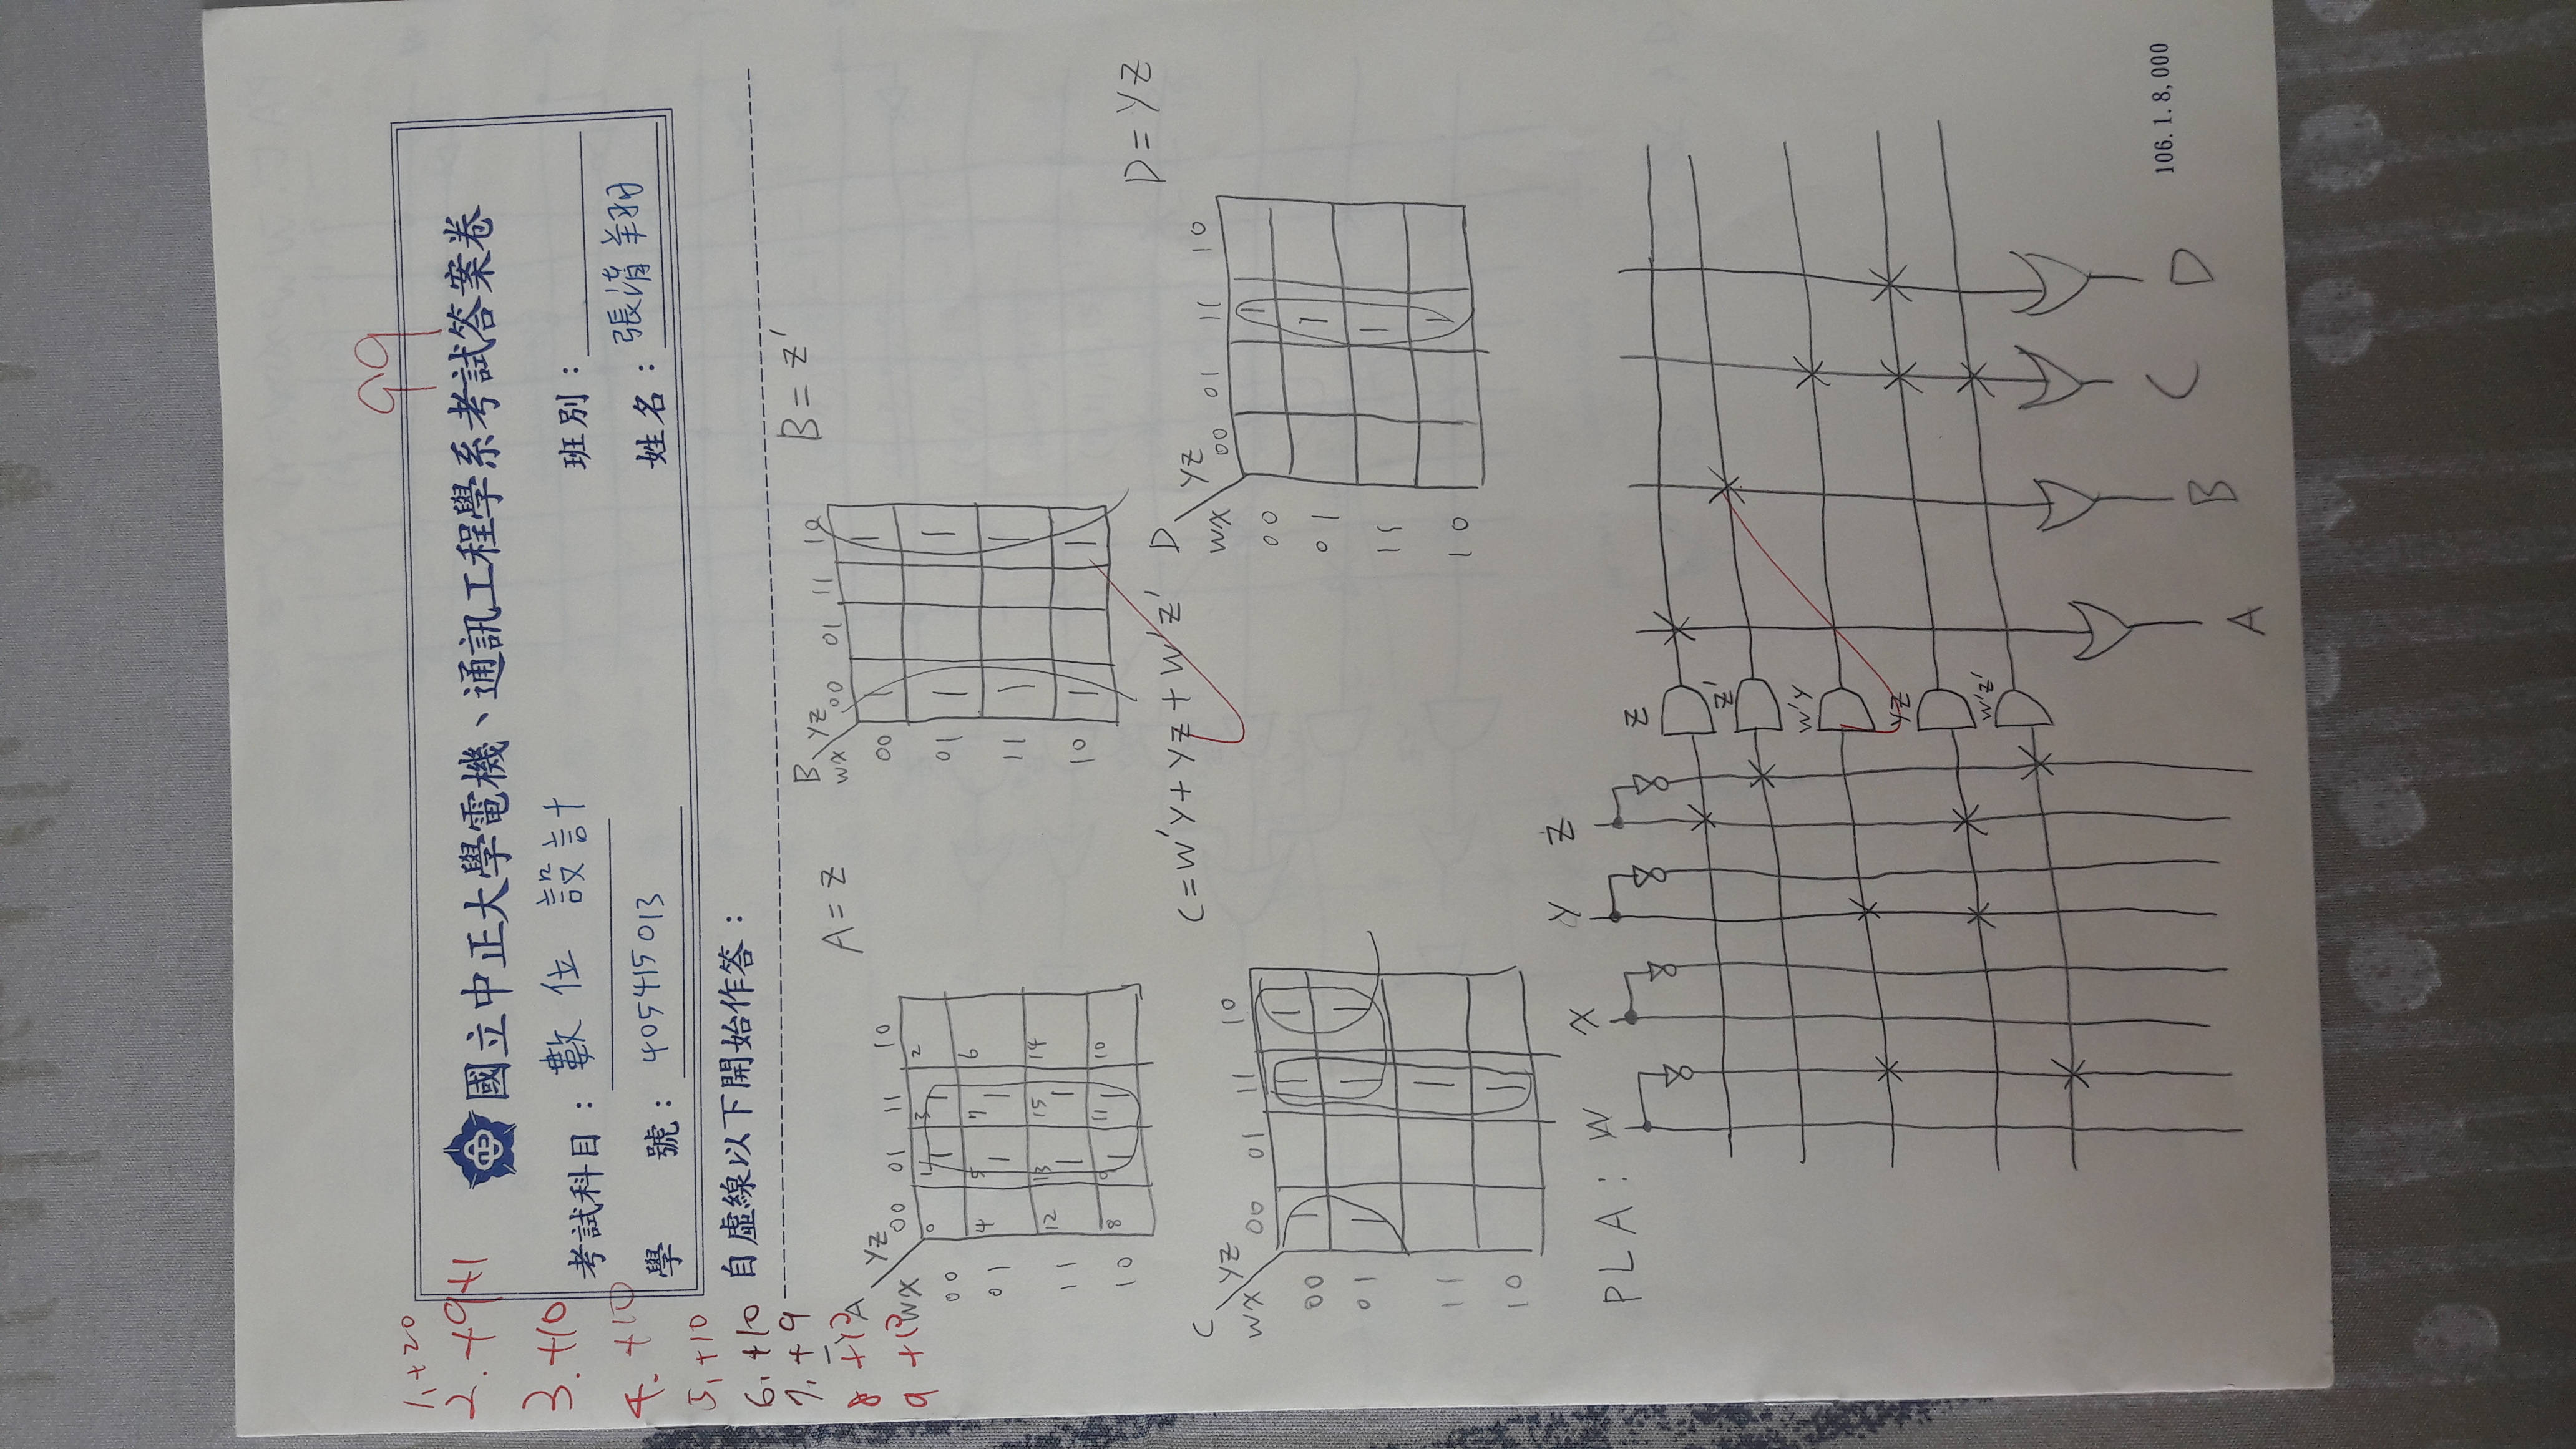 99
1. +20
2. +9+1
3. +10
4. +10
5. +10
6. +10
7. +9
8 +10
9 +10
國立中正大學電機、通訊工程學系考試答案卷
考試科目：數位設計
班別：
學號：405415013
姓名：張清羽
自虛線以下開始作答：
A
YZ
WX
00 01 11 10
00
01
11
10
0 1 3 2
1 1
4 5 7 6
1 1
12 13 15 14
1 1
8 9 11 10
1 1
A = Z
B
YZ
WX
00 01 11 10
00 1 1
01 1 1
11 1 1
10 1 1
B = Z'
C
YZ
WX
00 01 11 10
00 1 1 1
01 1 1 1
11 1
10 1
C = W'Y + YZ + W'Z'
D
YZ
WX
00 01 11 10
00 1
01 1
11 1
10 1
D = YZ
PLA: W X Y Z
Z
Z'
W'Y
YZ
W'Z'
A B C D
106.1.8,000